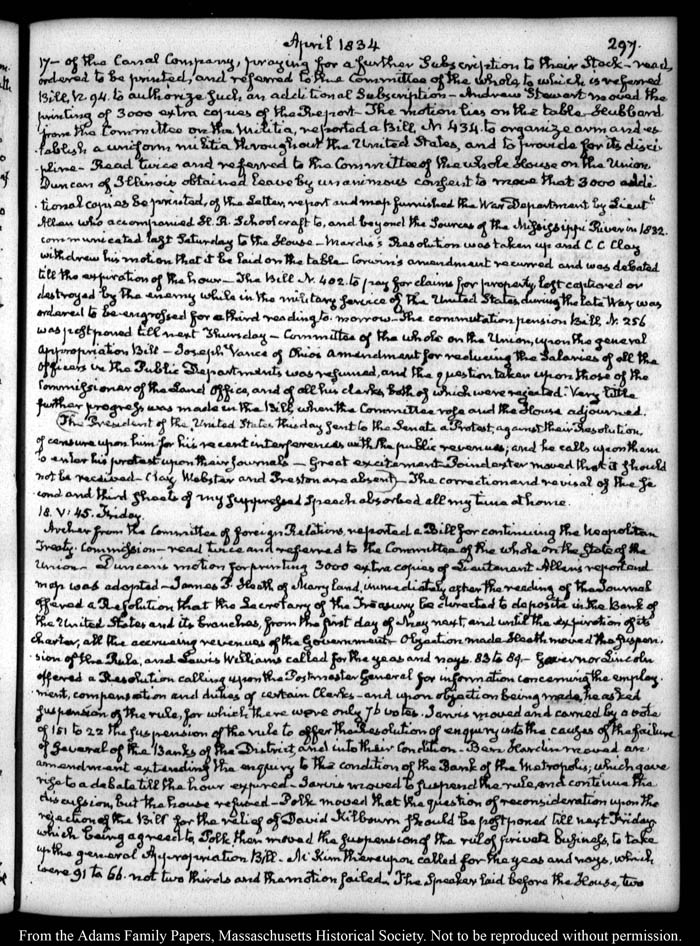 April 1834
297.
17- of the Canal Company, praying for a further Subscription to their Stock - read,
ordered to be printed, and referred to the Committee of the whole to which is referred
Bill, N. 94. to authorize such, an additional Subscription - Andrew Stewart moved the
printing of 3000 extra copies of the Report - The motion lies on the table. Hubbard
from the Committee on the Militia, reported a Bill, N. 434. to organize arm and es
tablish a uniform militia throughout the United States, and to provide for its disci-
pline - Read twice and referred to the Committee of the whole House on the Union
Duncan of Illinois obtained leave by unanimous consent to move that 3000 addi-
tional copies be printed, of the Letter, report and map furnished the War Department by Lieutt
Allen who accompanied H. R. Schoolcraft to, and beyond the Sources of the Mississippi River in 1832.
communicated last Saturday to the House - Mardis's Resolution was taken up and C. C. Clay
withdrew his motion that it be laid on the table - Corwin's amendment recurred and was debated
till the expiration of the hour - The Bill N. 402. to pay for claims for property, lost captured or
destroyed by the enemy while in the military service of the United States, during the late War, was
ordered to be engrossed for a third reading to-morrow - The commutation pension Bill N. 256
was postponed till next Thursday - Committee of the whole on the Union, upon the general
appropriation Bill - Joseph Vance of Ohio's amendment for reducing the Salaries of all the
Officers in the Public Departments was resumed, and the question taken upon those of the
Commissioner of the Land Office, and of all his clerks, both of which were rejected. Very little
further progress was made in the Bill, when the Committee rose and the House adjourned.
The President of the United States this day sent to the Senate a Protest, against their Resolution,
of censure upon him for his recent interferences with the public revenues, and he calls upon them
to enter his protest upon their Journals - Great excitement - Poindexter moved that it should
not be received - Clay, Webster and Preston are absent - The correction and revisal of the se
cond and third sheets of my suppressed Speech absorbed all my time at home.
18. V: 45. Friday.
Archer from the Committee of foreign Relations, reported a Bill for continuing the Neapolitan
Treaty-Commission - read twice and referred to the Committee of the whole on the State of the
Union - Duncan's motion for printing 3000 extra copies of Lieutenant Allen's report and
map was adopted - James P. Heath of Maryland, immediately after the reading of the Journal
offered a Resolution that the Secretary of the Treasury be directed to deposite in the Bank of
the United States and its branches, from the first day of May next, and until the expiration of its
Charter, all the accruing revenues of the Government - Objection made. Heath moved the suspen-
sion of the Rule, and Lewis Williams called for the yeas and nays. 83 to 89 - Governor Lincoln
offered a Resolution calling upon the Postmaster General for information concerning the employ-
ment, compensation and duties of certain Clerks - and upon objection being made, he asked
suspension of the rule, for which there were only 76 votes. Jarvis moved and carried by a vote
of 151 to 22 the suspension of the rule to offer the Resolution of enquiry into the causes of the failure
of several of the Banks of the District, and into their Condition - Ben. Hardin moved an
amendment extending the enquiry to the condition of the Bank of the Metropolis, which gave
rise to a debate till the hour expired - Jarvis moved to suspend the rule, and continue the
discussion, but the house refused - Polk moved that the question of reconsideration upon the
rejection of the Bill for the relief of David Kilbourn should be postponed till next Friday
which being agreed to Polk then moved the suspension of the rule of private business, to take
up the general Appropriation Bill. McKim thereupon called for the yeas and nays, which
were 91 to 66. not two thirds and the motion failed. The Speaker laid before the House, two
From the Adams Family Papers, Massachusetts Historical Society. Not to be reproduced without permission.